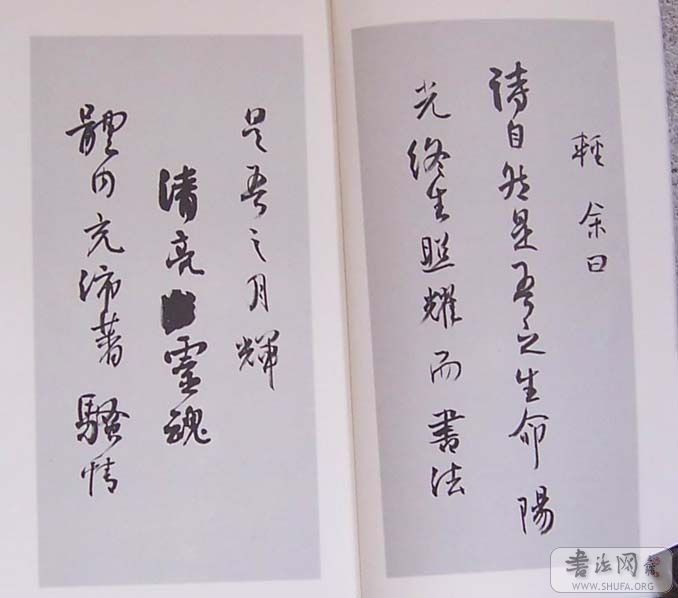 輕 余曰
诗自然是吾之生命 陽
光终生照耀 而書法
是吾之月輝
清亮靈魂
體内充沛著騷情
書法网
WWW.SHUFA.ORG